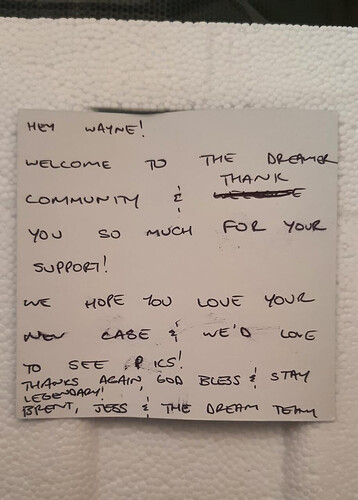 HEY WAYNE!
WELCOME TO THE DREAMER
THANK
COMMUNITY &
YOU SO MUCH FOR YOUR
SUPPORT!
WE HOPE YOU LOVE YOUR
NEW CASE & WE'D LOVE
TO SEE PICS!
THANKS AGAIN, GOD BLESS & STAY
LEGENDARY!
BRENT, JESS & THE DREAM TEAM